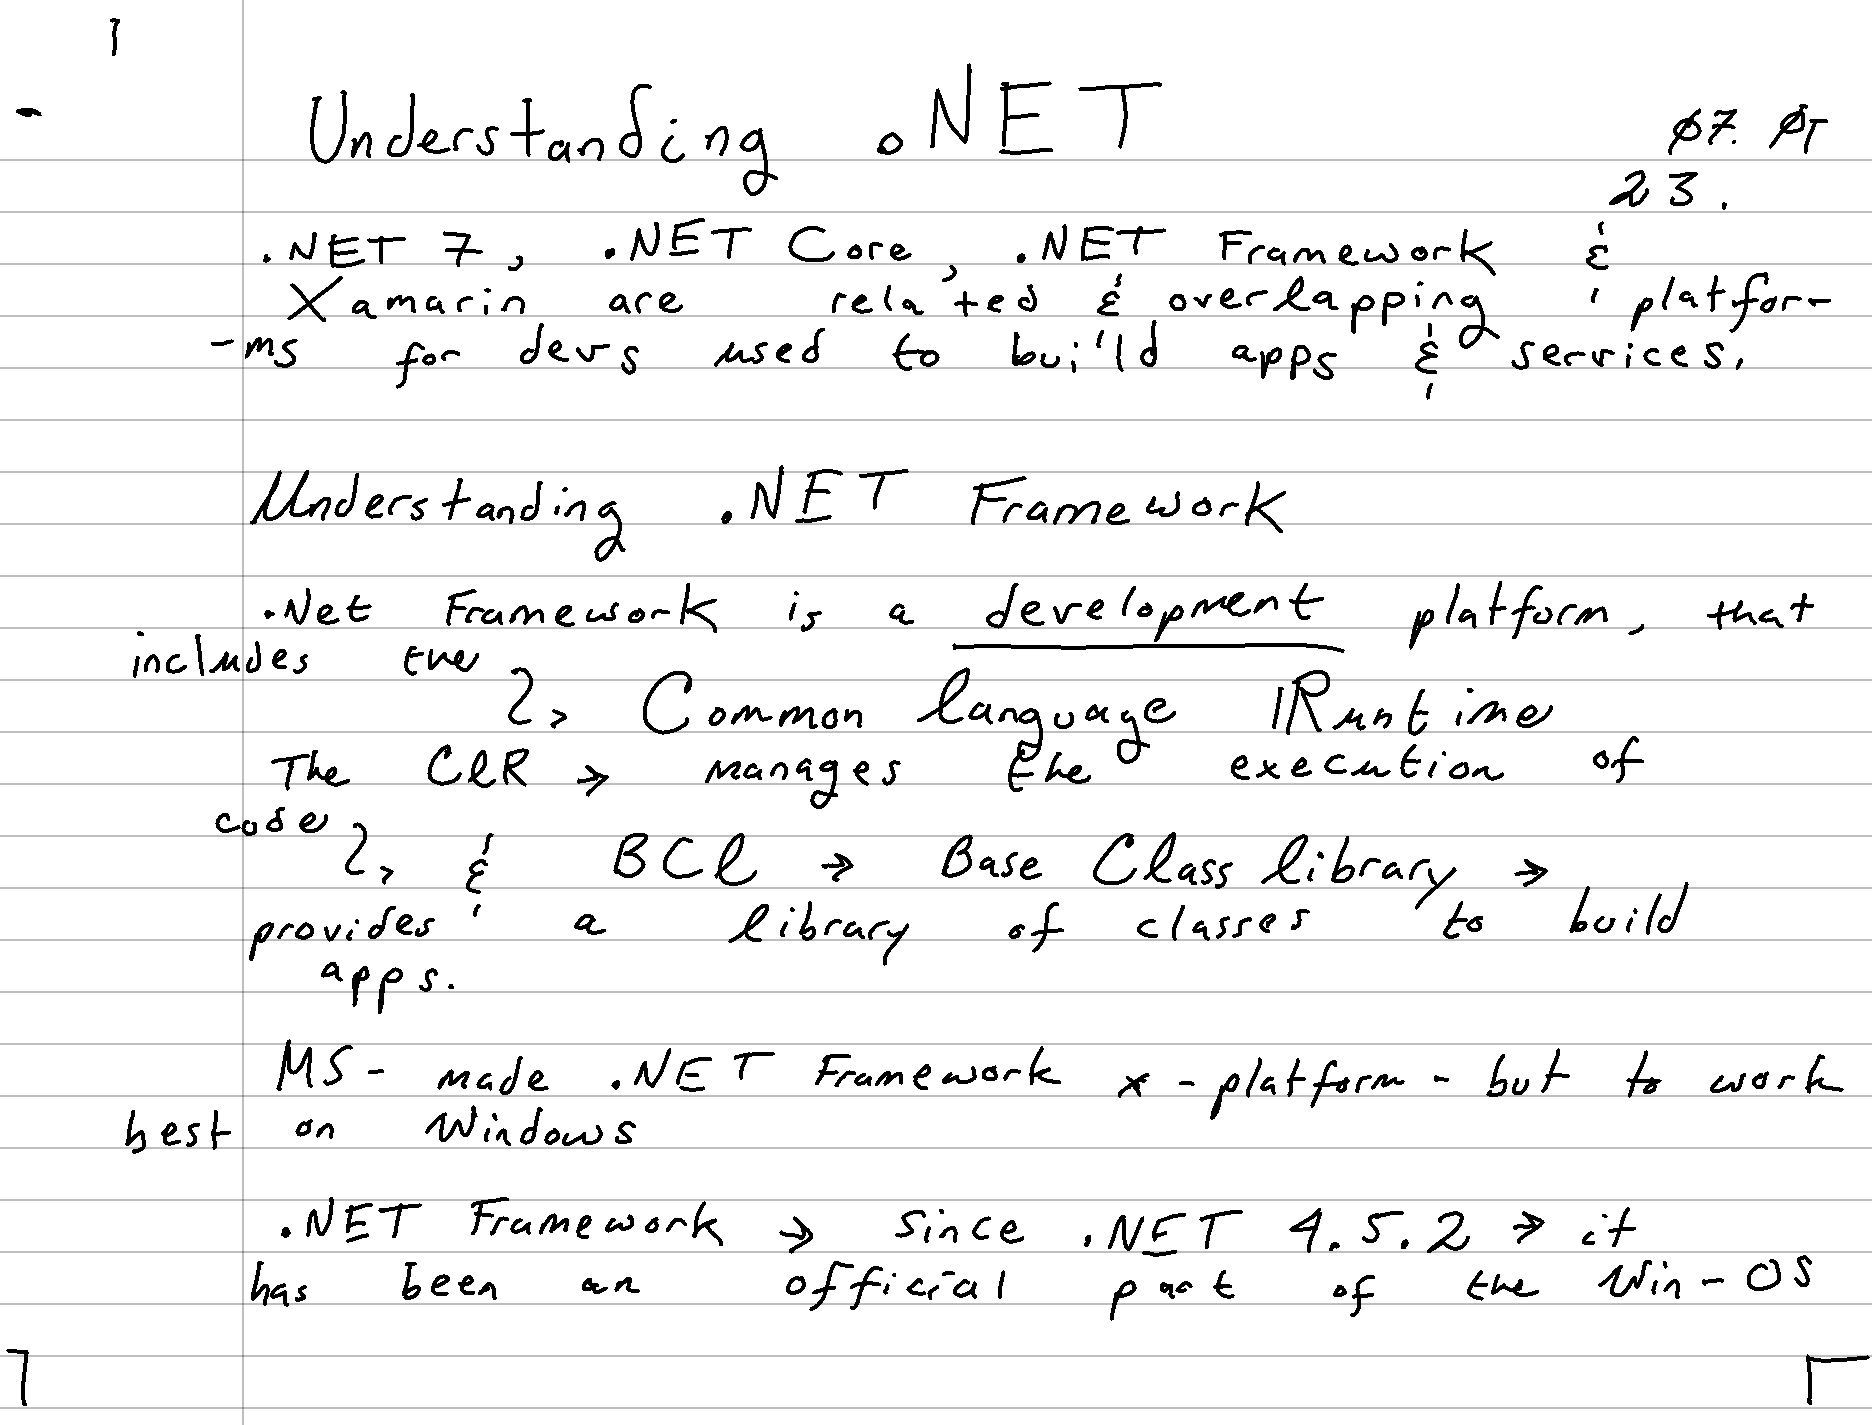 1
Understanding .NET
07. 07
23.
.NET 7, .NET Core, .NET Framework &
Xamarin are related & overlapping platfor-
-ms for devs used to build apps & services.
Understanding .NET Framework
.Net Framework is a development platform, that
includes the
Common language Runtime
The ClR → manages the execution of
code
& BCl → Base Class library →
provides a library of classes to build
apps.
MS - made .NET Framework x-platform - but to work
best on Windows
.NET Framework → Since .NET 4.5.2 → it
has been an official part of the Win-OS